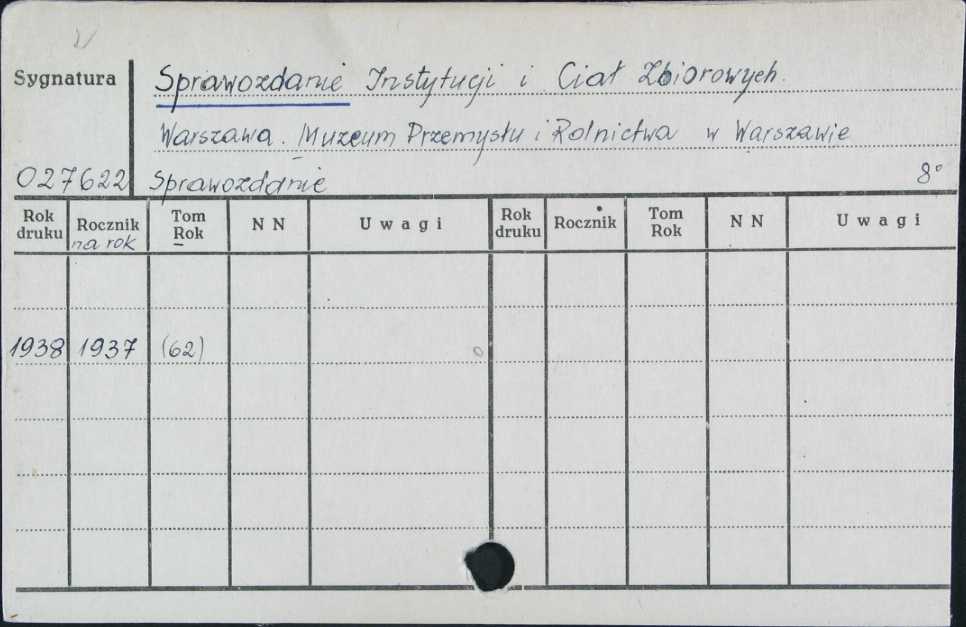 Sygnatura
Sprawozdanie Instytucji i Ciał Zbiorowych.
Warszawa. Muzeum Przemysłu i Rolnictwa w Warszawie
027622 Sprawozdanie 8°
Rok druku Rocznik na rok Tom Rok N N Uwagi Rok druku Rocznik Tom Rok N N Uwagi
1938 1937 (62)